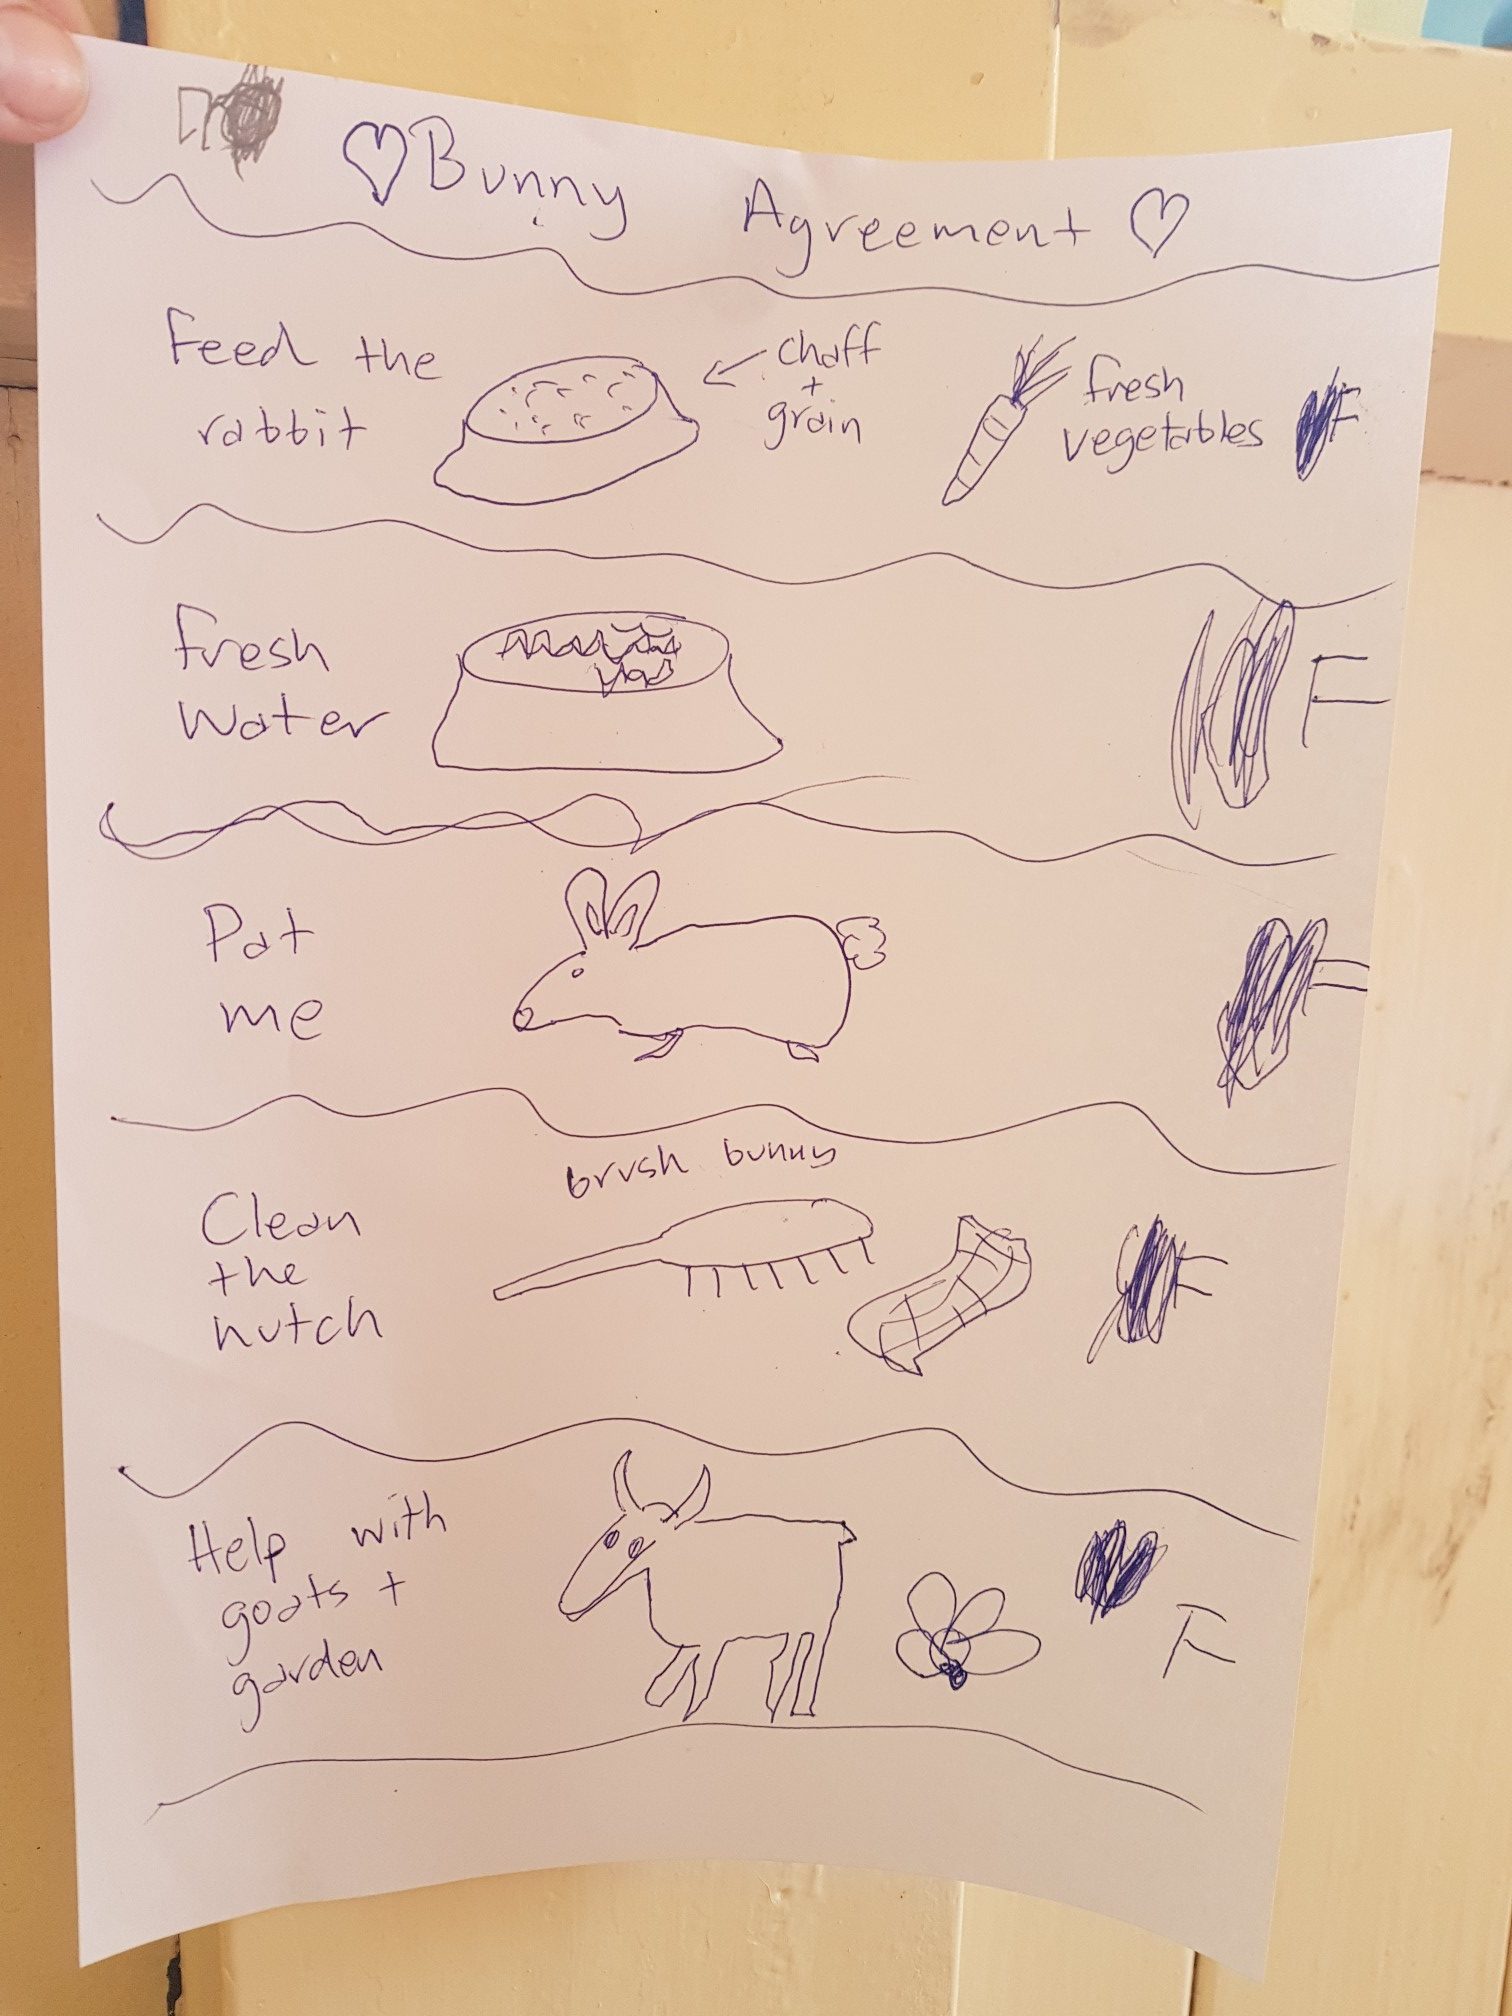 Bunny Agreement
Feed the
rabbit
chaff
+
grain
fresh
vegetables
F
Fresh
Water
F
Pat
me
F
brush bunny
Clean
the
hutch
F
Help with
goats +
garden
F